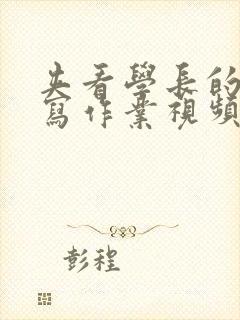 去看學長的
寫作業視頻
彭程